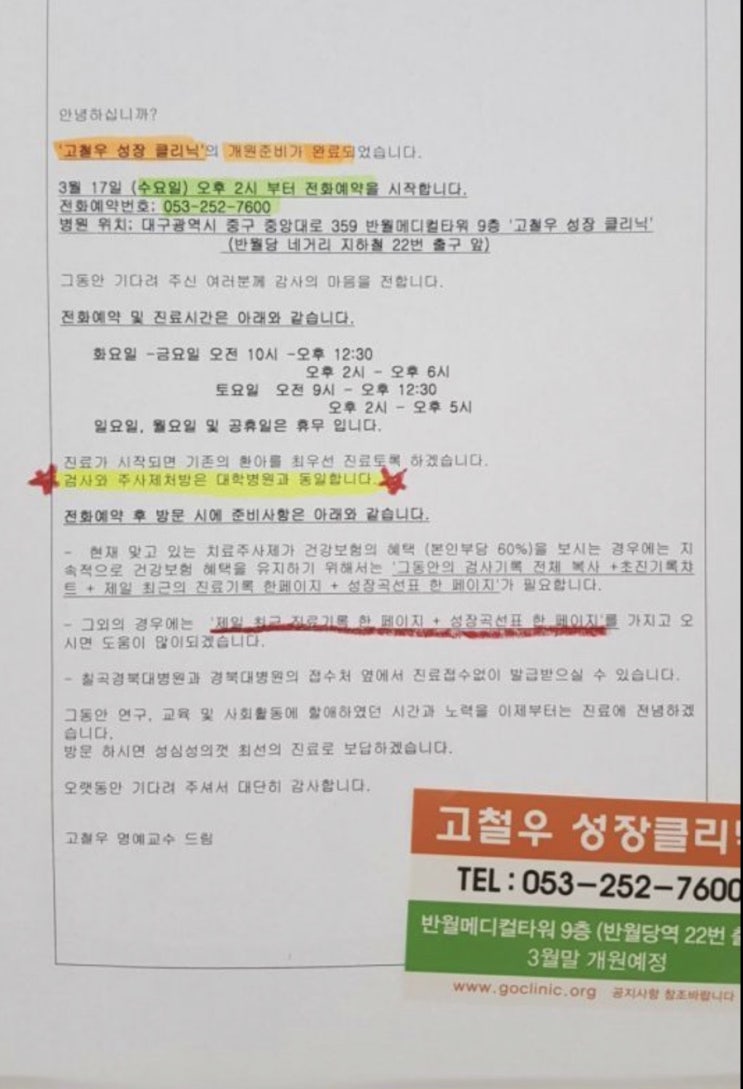 안녕하십니까?
'고철우 성장 클리닉'의 개원준비가 완료되었습니다.
3월 17일 (수요일) 오후 2시 부터 전화예약을 시작합니다.
전화예약번호: 053-252-7600
병원 위치: 대구광역시 중구 중앙대로 359 반월메디컬타워 9층 '고철우 성장 클리닉'
(반월당 네거리 지하철 22번 출구 앞)
그동안 기다려 주신 여러분께 감사의 마음을 전합니다.
전화예약 및 진료시간은 아래와 같습니다.
화요일 -금요일 오전 10시 -오후 12:30
오후 2시 - 오후 6시
토요일 오전 9시 - 오후 12:30
오후 2시 - 오후 5시
일요일, 월요일 및 공휴일은 휴무 입니다.
진료가 시작되면 기존의 환아를 최우선 진료토록 하겠습니다.
검사와 주사제처방은 대학병원과 동일합니다.
전화예약 후 방문 시에 준비사항은 아래와 같습니다.
- 현재 맞고 있는 치료주사제가 건강보험의 혜택 (본인부담 60%)을 보시는 경우에는 지
속적으로 건강보험 혜택을 유지하기 위해서는 '그동안의 검사기록 전체 복사 +초진기록차
트 + 제일 최근의 진료기록 한페이지 + 성장곡선표 한 페이지'가 필요합니다.
- 그외의 경우에는 '제일 최근 진료기록 한 페이지 + 성장곡선표 한 페이지'를 가지고 오
시면 도움이 많이되겠습니다.
- 칠곡경북대병원과 경북대병원의 접수처 옆에서 진료접수없이 발급받으실 수 있습니다.
그동안 연구, 교육 및 사회활동에 할애하였던 시간과 노력을 이제부터는 진료에 전념하겠
습니다.
방문 하시면 성심성의껏 최선의 진료로 보답하겠습니다.
오랫동안 기다려 주셔서 대단히 감사합니다.
고철우 명예교수 드림
고철우 성장클리
TEL : 053-252-7600
반월메디컬타워 9층 (반월당역 22번
3월말 개원예정
www.goclinic.org 공지사항 참조바랍니다